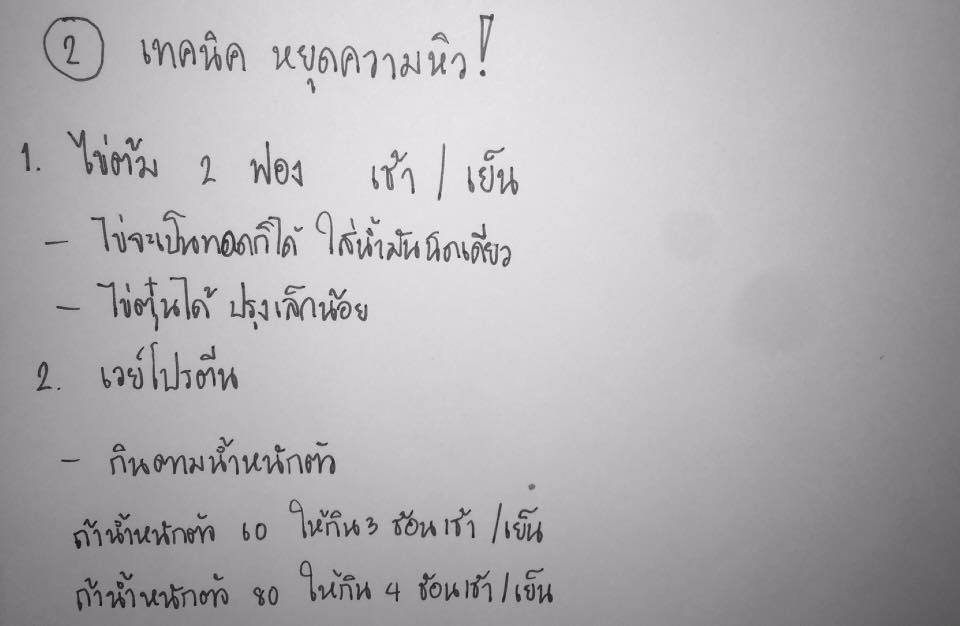 2 เทคนิค หยุดความหิว!
1. ไข่ต้ม 2 ฟอง เช้า / เย็น
- ไข่จะเป็นทอดก็ได้ ใส่น้ำมันนิดเดียว
- ไข่ตุ๋นได้ ปรุงเล็กน้อย
2. เวย์โปรตีน
- กินตามน้ำหนักตัว
ถ้าน้ำหนักตัว 60 ให้กิน 3 ช้อน เช้า / เย็น
ถ้าน้ำหนักตัว 80 ให้กิน 4 ช้อน เช้า / เย็น